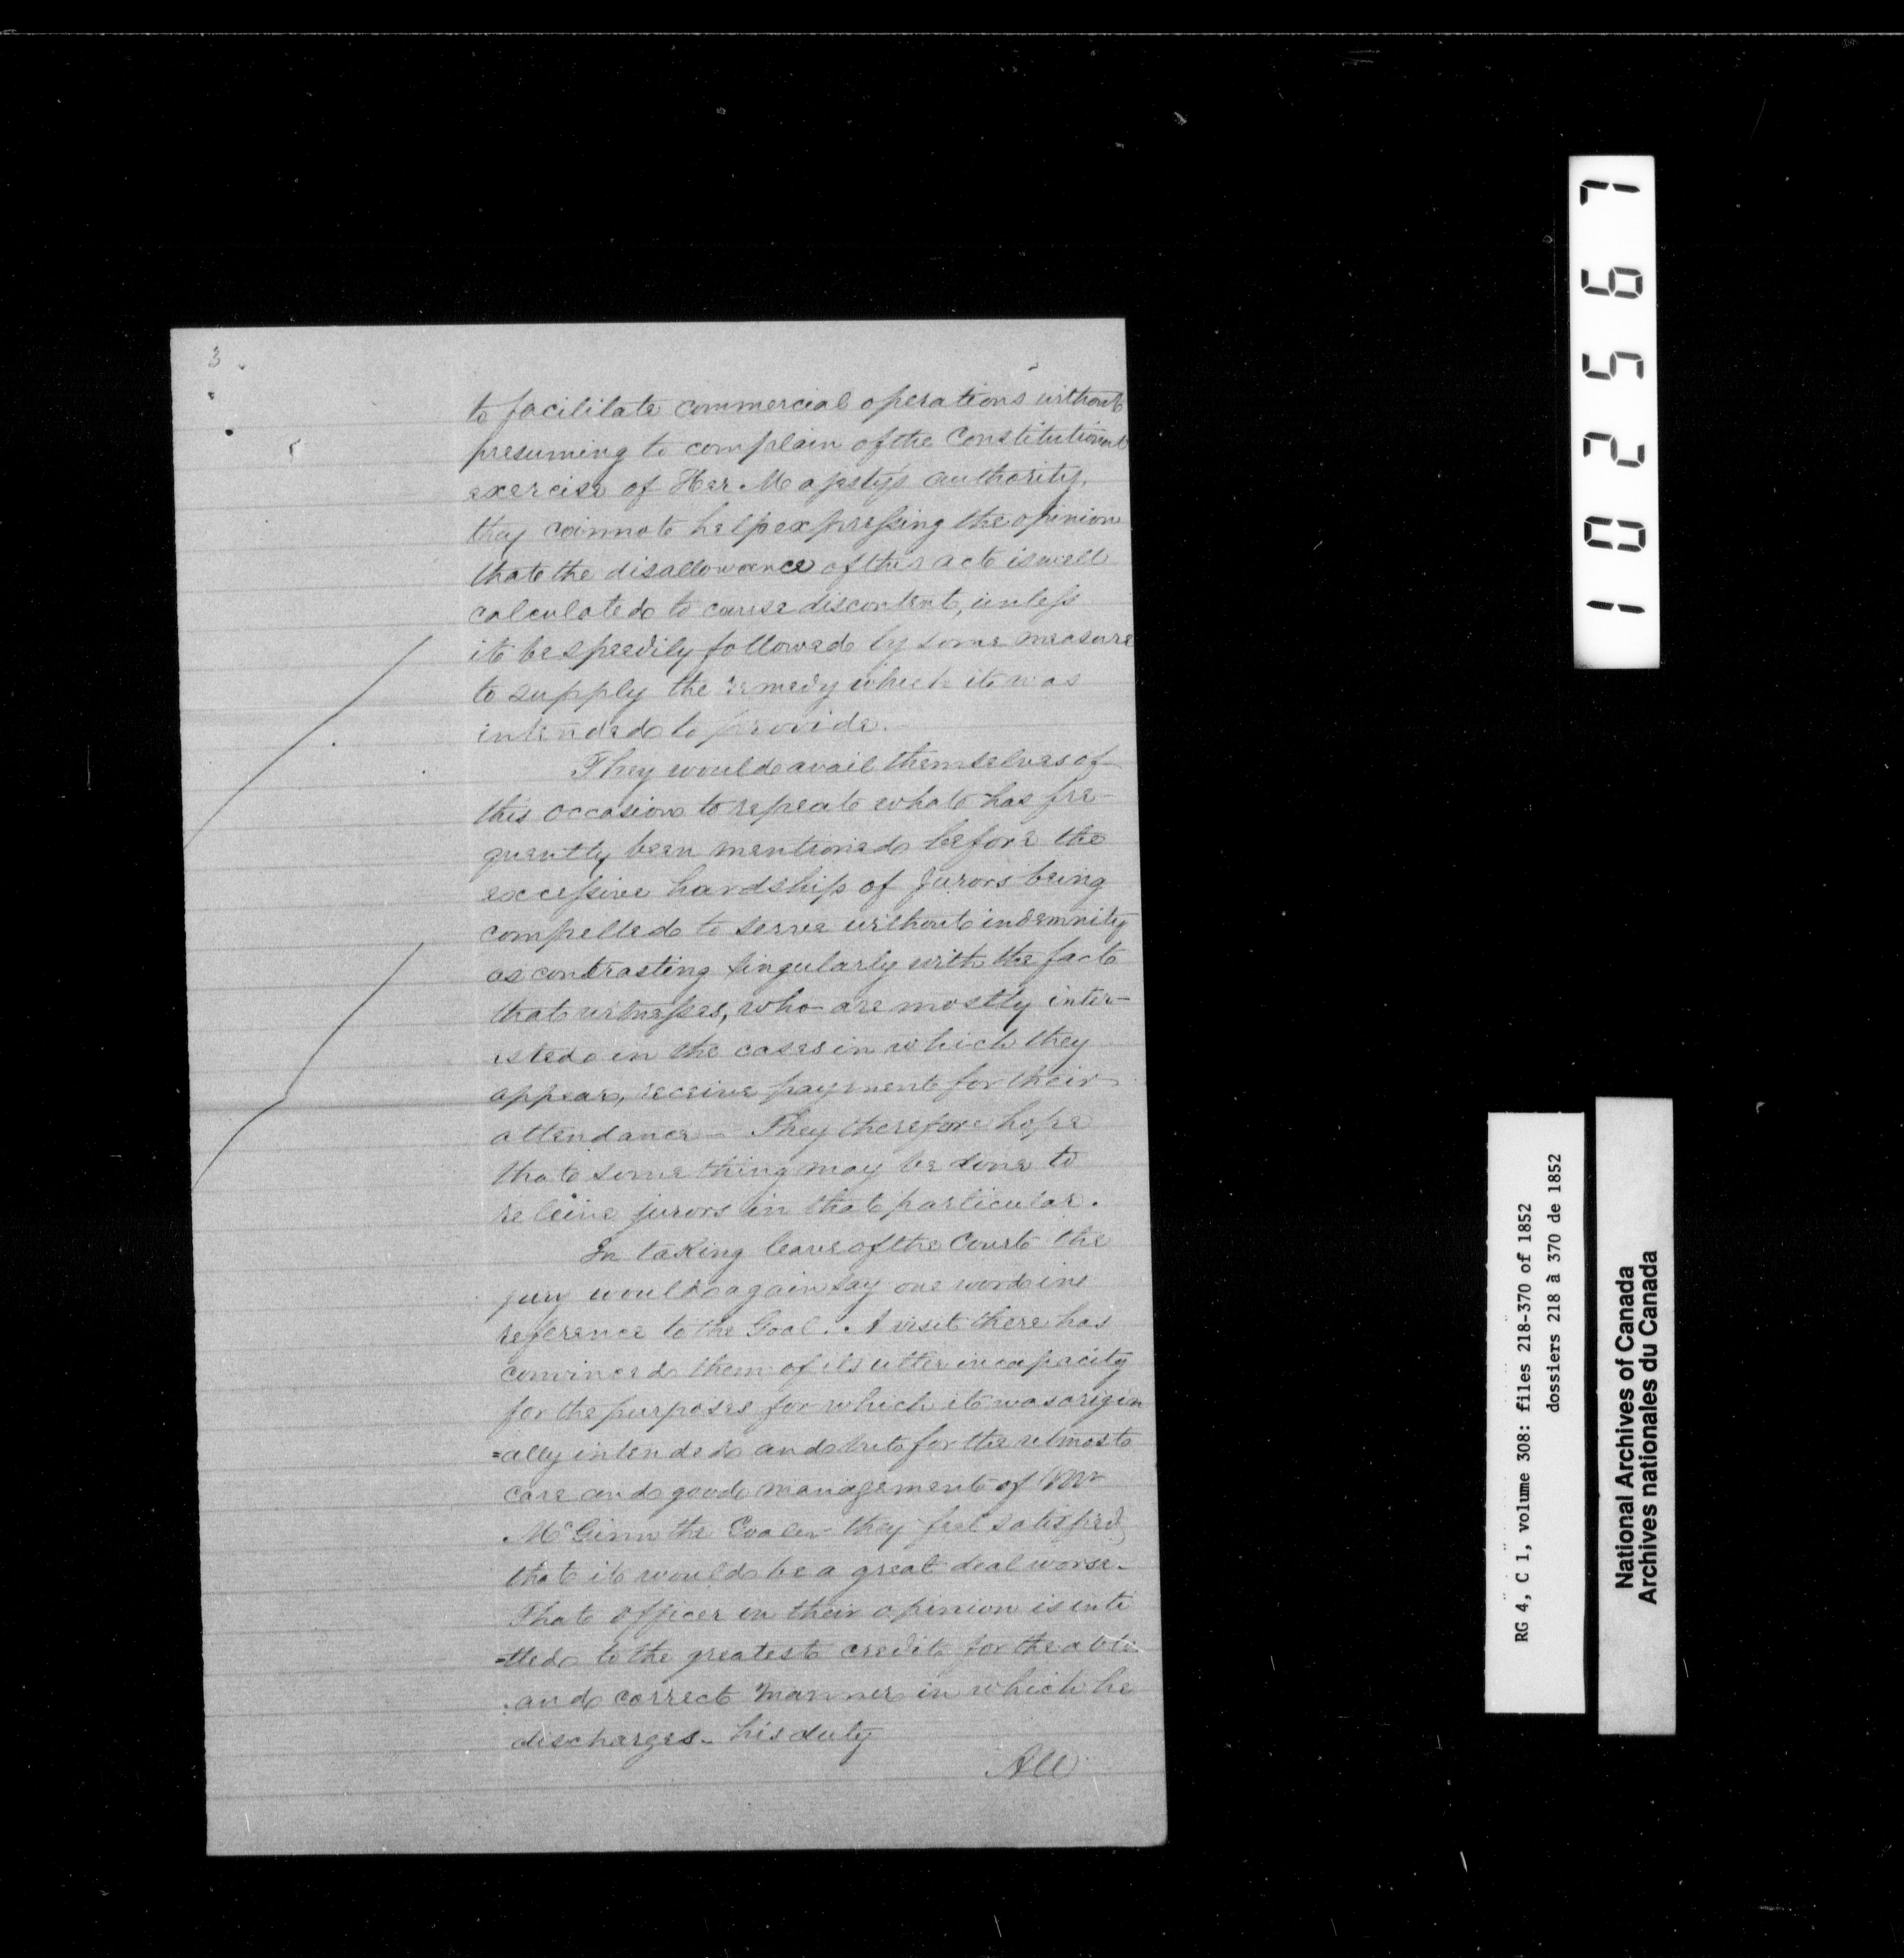 3
to facilitate commercial operations without
presuming to complain of the Constitutional
exercise of Her Majesty's authority,
they cannot help expressing the opinion
that the disallowance of this act is well
calculated to cause discontent, unless
it be speedily followed by some measure
to supply the remedy which it was
intended to provide.
They would avail themselves of
this occasion to repeat what has fre-
quently been mentioned before the
excessive hardship of Jurors being
compelled to serve without indemnity
as contrasting singularly with the fact
that witnesses, who are mostly inter-
ested in the cases in which they
appear, receive payment for their
attendance - They therefore hope
that some thing may be done to
releive jurors in that particular.
In taking leave of the Court the
jury would again say one word in
reference to the Goal. A visit there has
convinced them of its utter incapacity
for the purposes for which it was origin
=ally intended and but for the utmost
care and good management of Mr
McGinn the Goaler they feel satisfied
that it would be a great deal worse.
That officer in their opinion is enti
=tled to the greatest credit for the able
and correct manner in which he
discharges his duty
All
1 0 2 5 6 7
RG 4, C 1, volume 308: files 218-370 of 1852
dossiers 218 à 370 de 1852
National Archives of Canada
Archives nationales du Canada